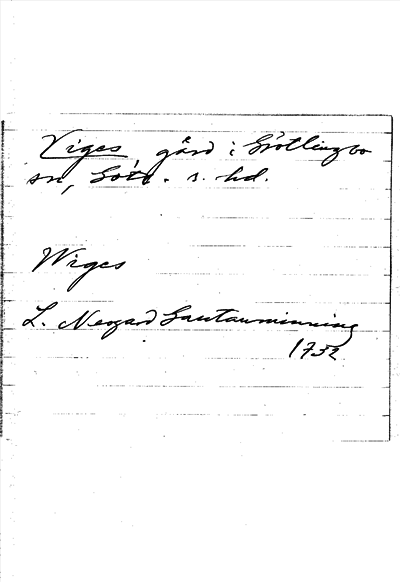 Viges, gård i Grötlingbo
sn, Gotl. s. hd.
Wiges
L. Neogard Gautauminning
1732